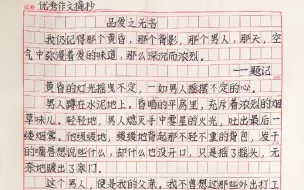 优秀作文摘抄
品爱之无言
我仍记得那个黄昏，那个背影，那个男人，那天，空
气中弥漫着爱的味道，那么深沉而浓烈。
——题记
黄昏的灯光摇曳不定，一如男人摇摆不定的心。
男人蹲在水泥地上，昏暗的平房里，充斥着浓烈的烟
草味儿。轻轻地，男人燃灭手中零星的火光，吐出最后一
缕烟雾。他缓缓地，缓缓地背起那不轻不重的背包，
的嘴唇想说些什么，却什么也没开口，只是摇了摇头，无
奈地踏出了家门。
这个男人，便是我的父亲。我不曾想过那些外出打工